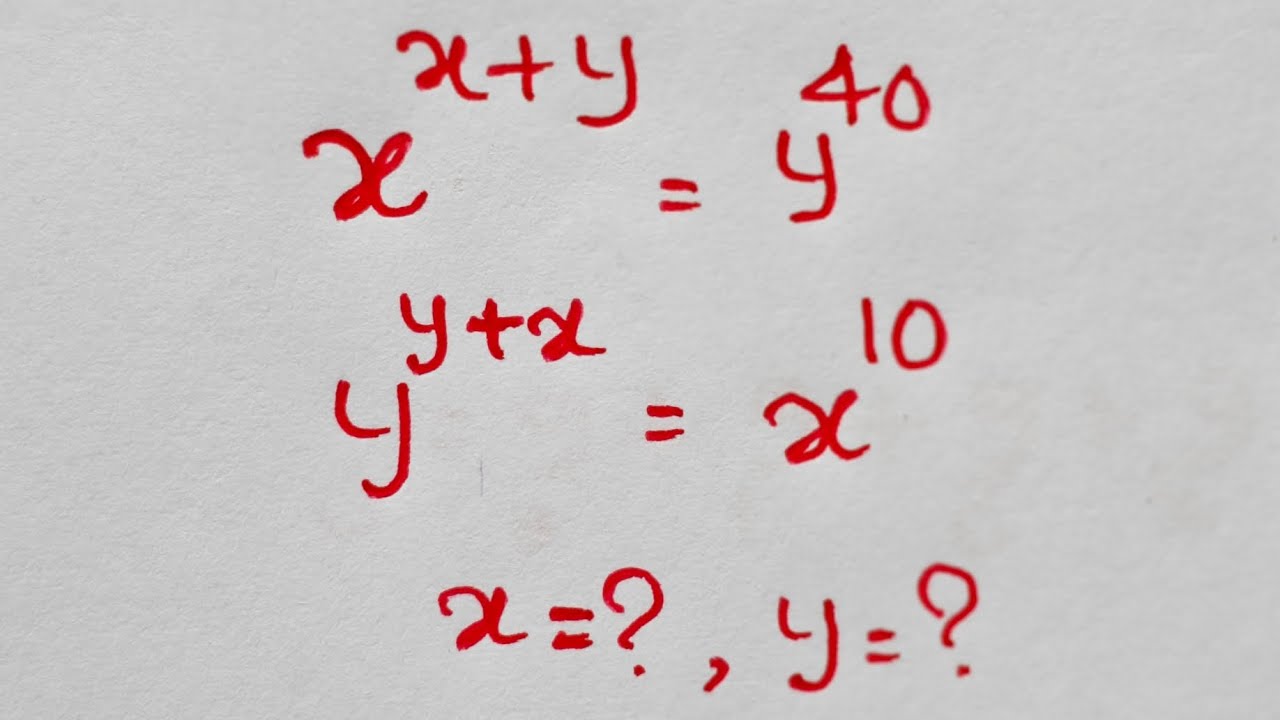 x^{x+y} = y^{40}
y^{y+x} = x^{10}
x=?, y=?